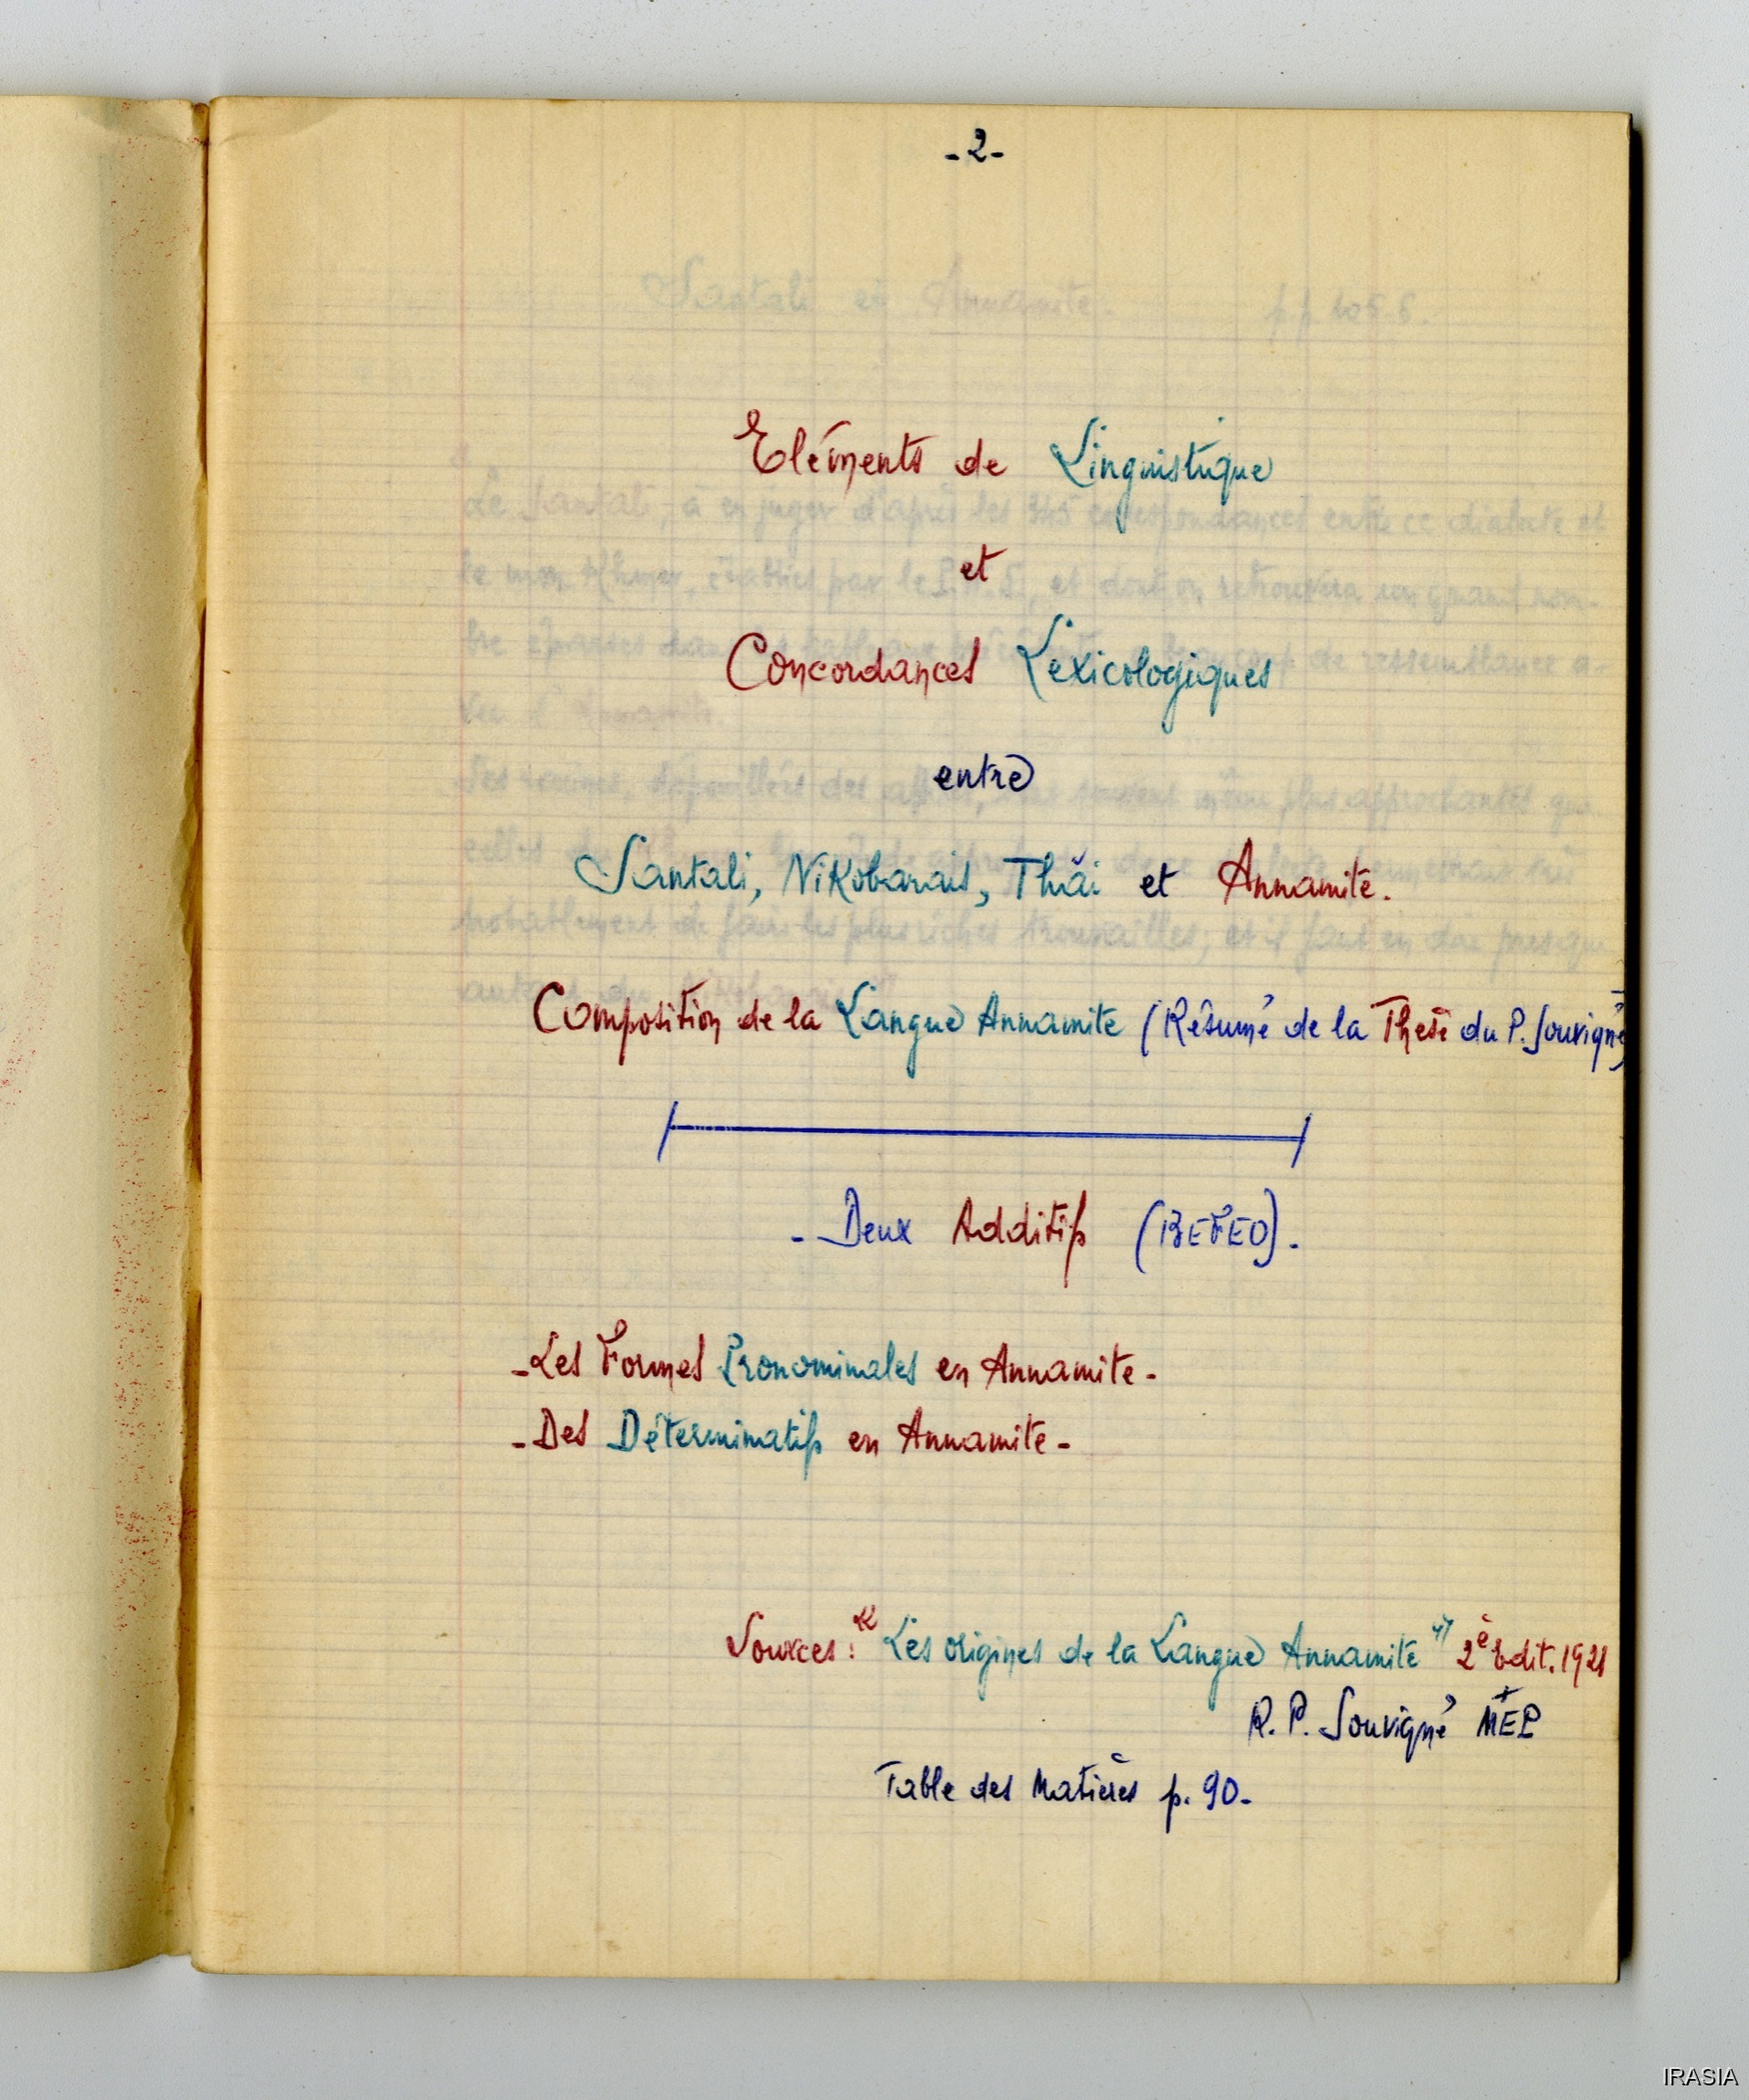 -2-
Eléments de Linguistique
et
Concordances Lexicologiques
entre
Santali, Nikobarais, Thăi et Annamite.
Composition de la Langue Annamite (Résumé de la Thèse du P. Souvigné)
- Deux Additifs (BEFEO).
- Les Formes Pronominales en Annamite -
- Des Déterminatifs en Annamite -
Sources : "Les origines de la Langue Annamite" 2è Edit. 1921
R. P. Souvigné MEP
Table des Matières p. 90-
IRASIA